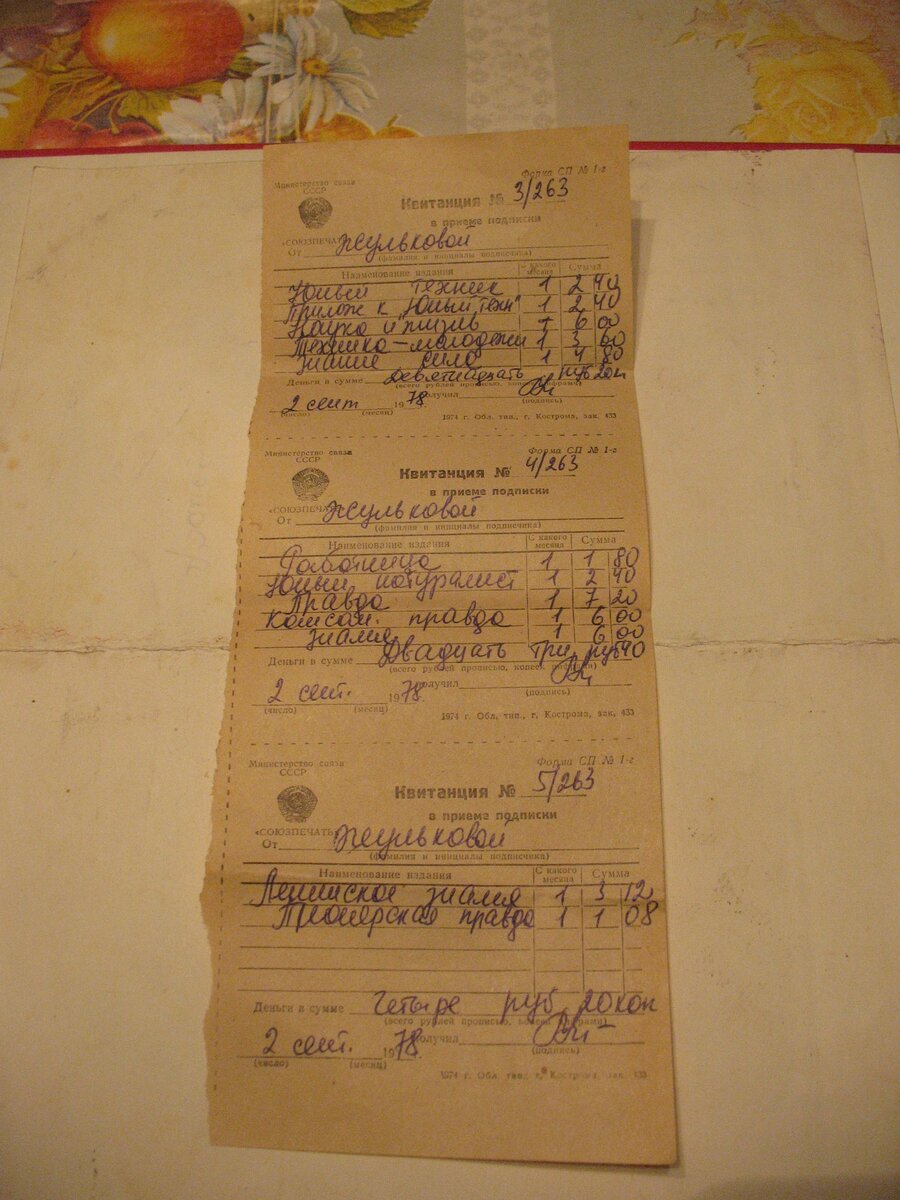 Министерство связи
СССР
Форма СП № 1-г
Квитанция № 3/263
в приеме подписки
«СОЮЗПЕЧАТЬ»
От Жульковой
(фамилия и инициалы подписчика)
Наименование издания С какого месяца Сумма
Юный техник 1 2 40
Прилож к "Юный техн" 1 2 40
Наука и жизнь 1 6 00
Техника-молодежи 1 3 60
Знание сила 1 4 80
Деньги в сумме Девятнадцать руб 20 к
(всего рублей прописью, копеек цифрами)
2 сент 1978 Получил
(число) (месяц) (подпись)
1974 г. Обл. тип., г. Кострома, зак. 433
Министерство связи
СССР
Форма СП № 1-г
Квитанция № 4/263
в приеме подписки
«СОЮЗПЕЧАТЬ»
От Жульковой
(фамилия и инициалы подписчика)
Наименование издания С какого месяца Сумма
Работница 1 1 80
Юный натуралист 1 2 40
Правда 1 7 20
Комсом. правда 1 6 00
Знамя 1 6 00
Деньги в сумме Двадцать три руб 40
(всего рублей прописью, копеек цифрами)
2 сент. 1978. Получил
(число) (месяц) (подпись)
1974 г. Обл. тип., г. Кострома, зак. 433
Министерство связи
СССР
Форма СП № 1-г
Квитанция № 5/263
в приеме подписки
«СОЮЗПЕЧАТЬ»
От Жульковой
(фамилия и инициалы подписчика)
Наименование издания С какого месяца Сумма
Ленинское знамя 1 3 12
Пионерская правда 1 1 08
Деньги в сумме Четыре руб 20 коп
(всего рублей прописью, копеек цифрами)
2 сент. 1978. Получил
(число) (месяц) (подпись)
1974 г. Обл. тип., г. Кострома, зак. 433